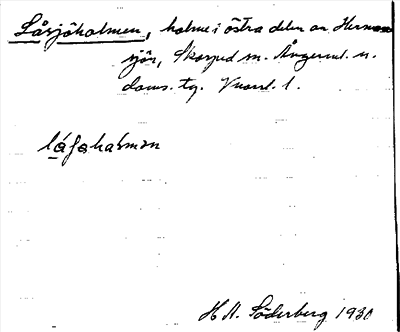 Låsjöholmen, holme i östra delen av Herman
sjön, Skorped sn. Ångerml. n.
doms. tg. Vnorrl. l.
låʃɷhɷlmɷn
H A. Söderberg 1930